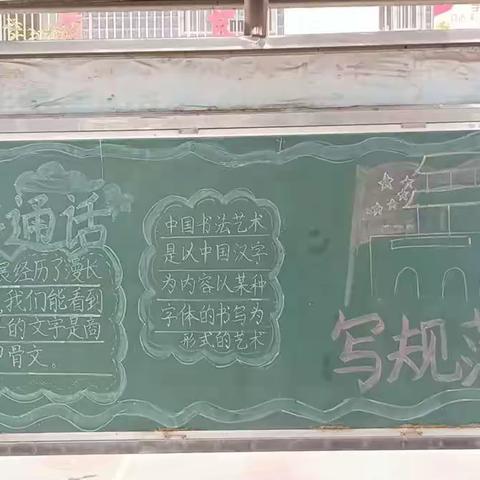 通话
经历了漫长
我们能看到
的文字是商
骨文。
中国书法艺术
是以中国汉字
为内容以某种
字体的书写为
形式的艺术
写规范